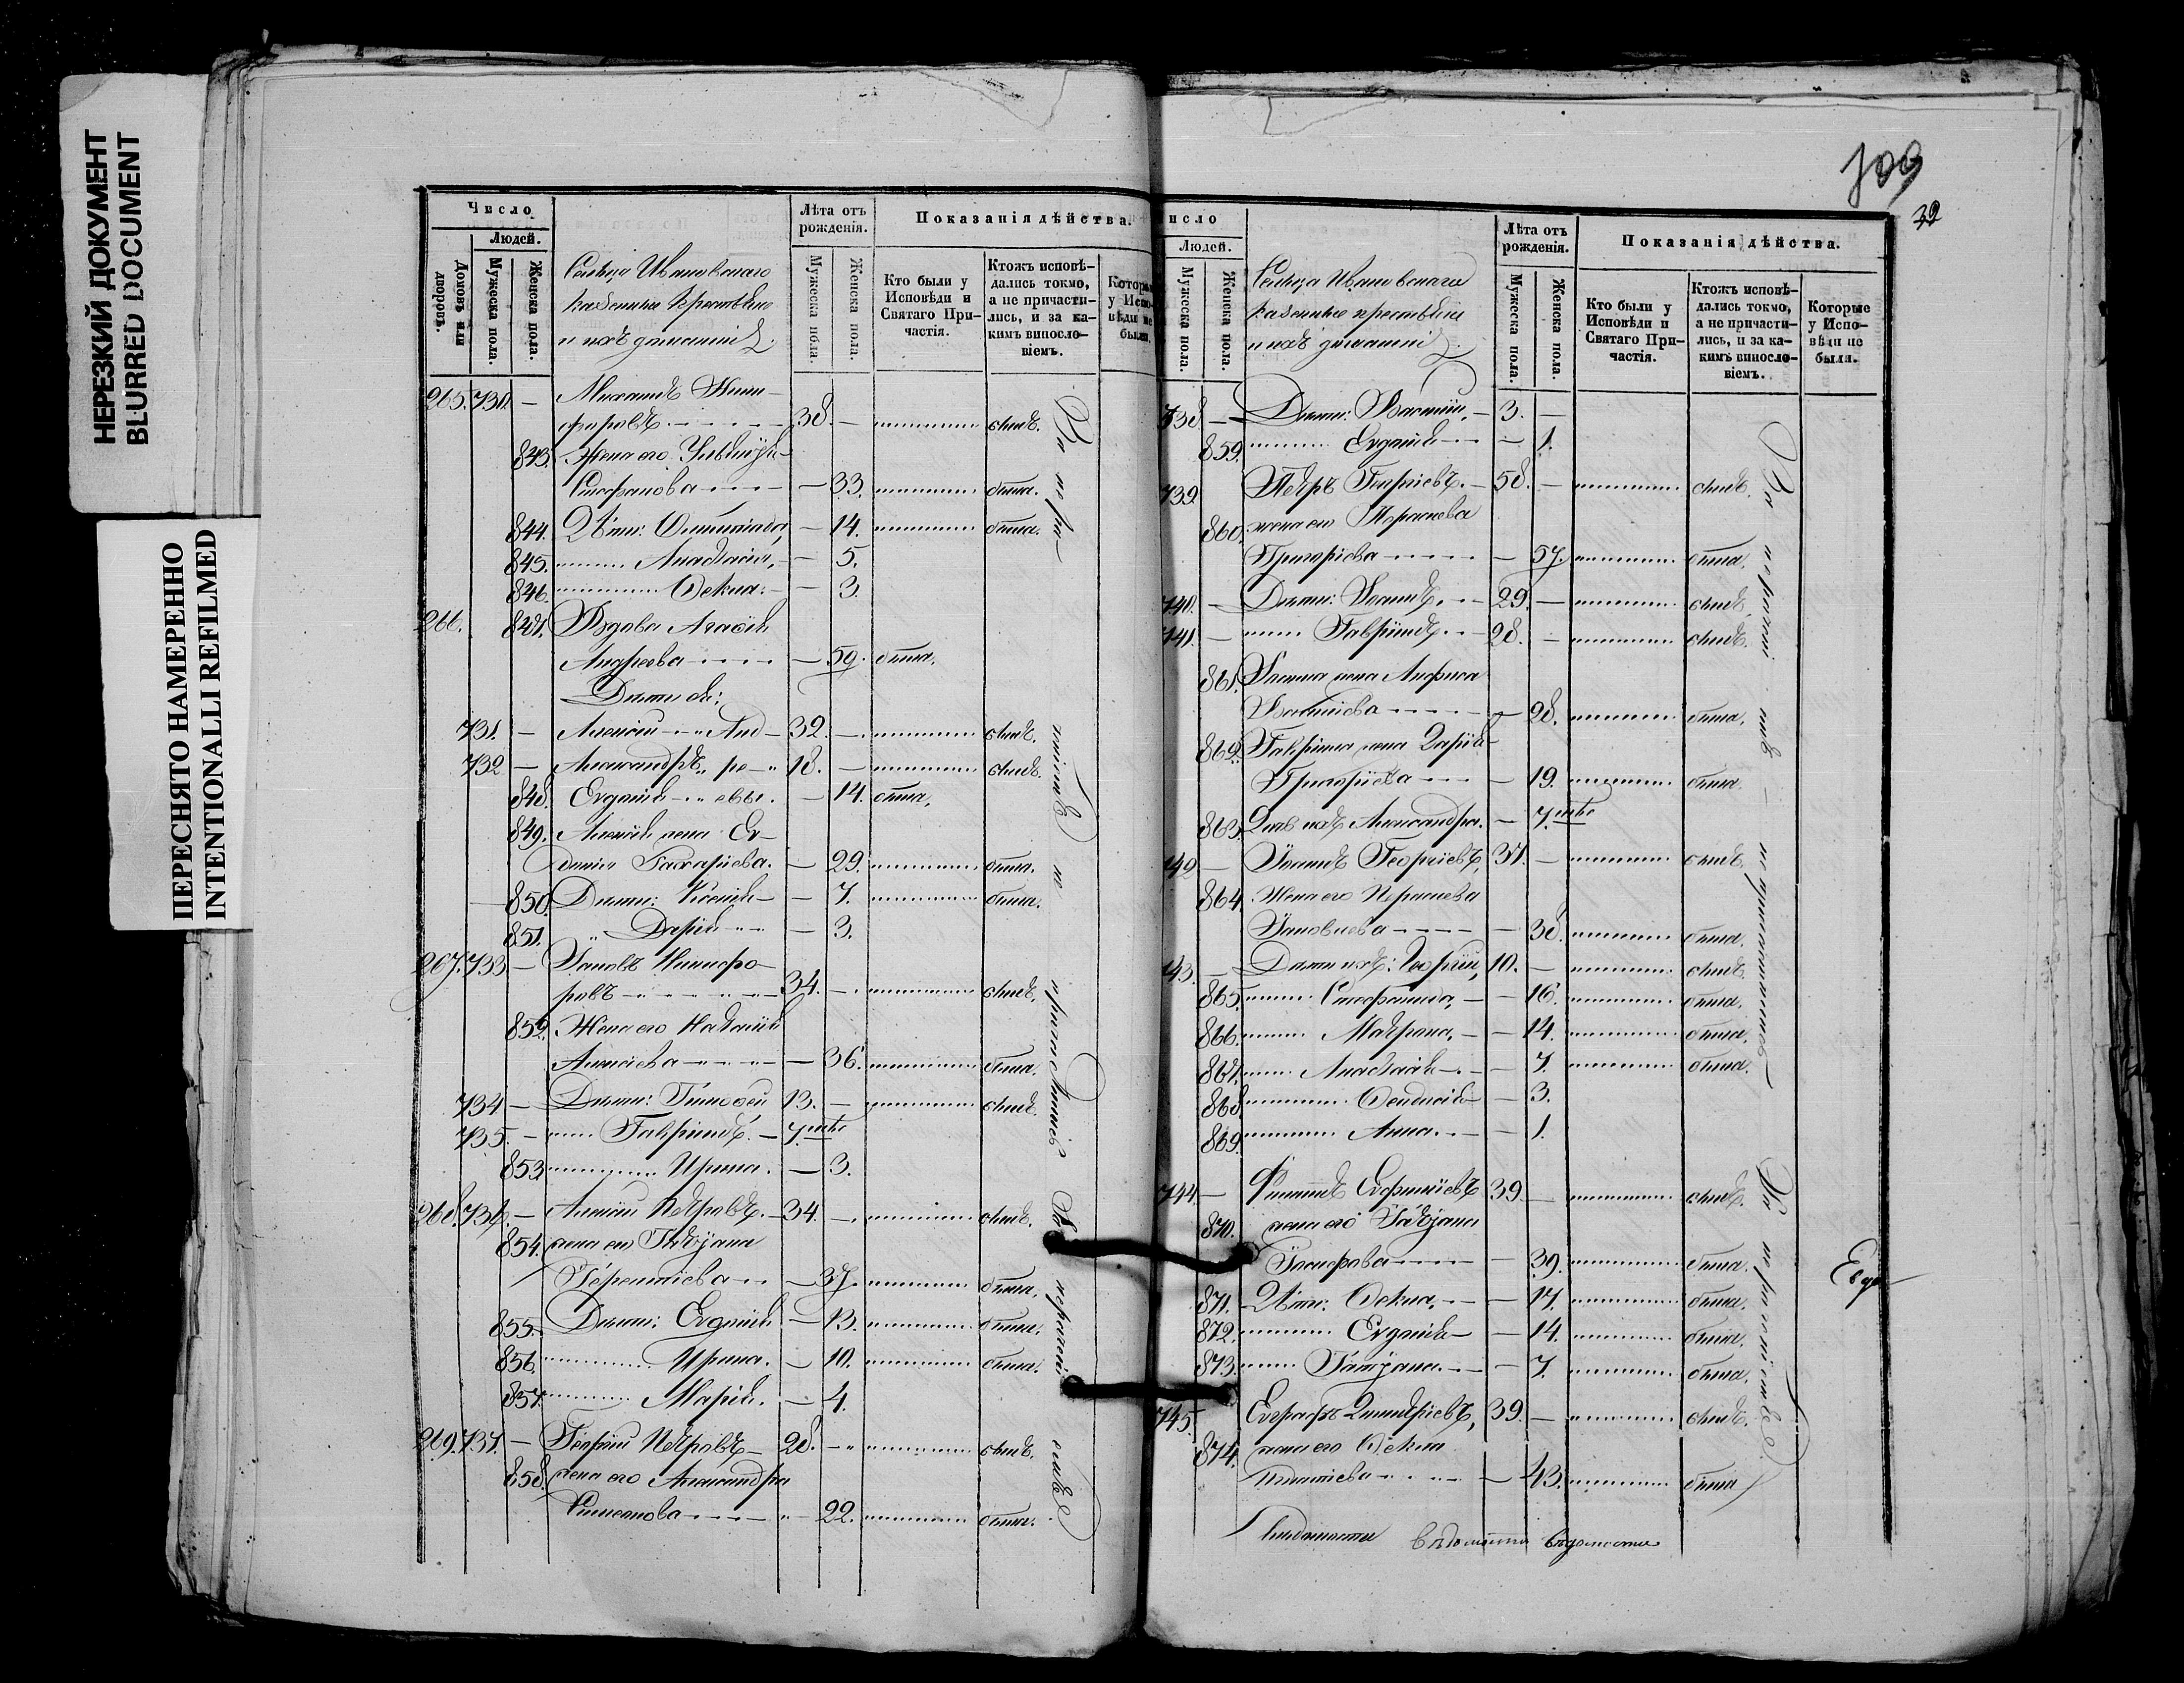 НЕРЕЗКИЙ ДОКУМЕНТ
BLURRED DOCUMENT
ПЕРЕСНЯТО НАМЕРЕННО
INTENTIONALLI REFILMED
Число
Людей.
Домовъ или дворовъ.
Мужеска пола.
Женска пола.
Сельца Ивановскаго
казенные крестьяне
и ихъ домашніе
Лѣта отъ рожденія.
Мужеска пола.
Женска пола.
Показанія дѣйства.
Кто были у Исповѣди и Святаго Причастія.
Ктожъ исповѣдались токмо, а не причастились, и за какимъ винословіемъ.
Которые у Исповѣди не были.
265. 730. — Михаилъ Ники-
форовъ 38. — былъ.
843. Жена его
Стефанова — 33. была.
844. Дѣти: — 14. была.
845. Анастасія, — 5.
846. Ѳекла. — 3.
266. 847. Вдова Агафія
Андреева — 59. была.
Дѣти ея:
731. — Алексій Анд- 32. — былъ.
732. — Александръ ре- 18. — былъ.
848. Евдокія евы. — 14. была.
849. Алексія жена Ев-
докія Захаріева. — 29. была.
850. Дѣти: Ксенія — 7. была.
851. Дарія — 3.
267. 733 — Іаковъ Никифо-
ровъ 34. — былъ.
852. Жена его Наталія
Алексіева — 36. была.
734 — Дѣти: Тимоѳей 13. — былъ.
735. — Гавріилъ. — 7.
853 Ирина. — 3.
268. 736. — Алексій Петровъ. — 34. — былъ.
854. жена его Татіана
Терентіева — 37. была.
855. Дѣти: Евдокія — 13. была.
856. Ирина. — 10. была.
857. Марія. — 4.
269. 737. — Георгій Петровъ — 28. — былъ.
858. жена его Александра
Симеонова — 22. была.
109
32
Число
Людей.
Мужеска пола.
Женска пола.
Сельца Ивановскаго
казенные крестьяне
и ихъ домашніе
Лѣта отъ рожденія.
Мужеска пола.
Женска пола.
Показанія дѣйства.
Кто были у Исповѣди и Святаго Причастія.
Ктожъ исповѣдались токмо, а не причастились, и за какимъ винословіемъ.
Которые у Исповѣди не были.
738 — Дѣти: Василій, — 3. —
859. Евдокія — 1.
739. Петръ Георгіевъ. — 58. — былъ.
860. жена его Параскева
Григоріева — 57. была.
740. — Дѣти: Іоаннъ. 29. — былъ.
741. — Гавріилъ. 28. — былъ.
861. Іоанна жена Анфиса
— 28. была.
862. Гавріила жена Дарія
Григоріева — 19. была.
863. Дочь ихъ Александра. — 7.
742 — Іоаннъ Георгіевъ, 37. — былъ.
864. Жена его Параскева
Іаковлева — 38. была.
743. — Дѣти ихъ: Георгій, 10. — былъ.
865. Стефанида, — 16. была.
866. Матрона, — 14. была.
867. Анастасія — 7. была.
868. Ѳеодосія — 3.
869. Анна. — 1.
744 — Филиппъ 39. — былъ.
870. жена его Татіана
— 39. была.
871. Дѣти: Ѳекла, — 17. была.
872. Евдокія — 14. была.
873. Татіана. — 7. была.
745. Евграфъ Димитріевъ, 39. — былъ.
874. жена его Ѳекла
— 43. была
вѣдомости вѣдомости